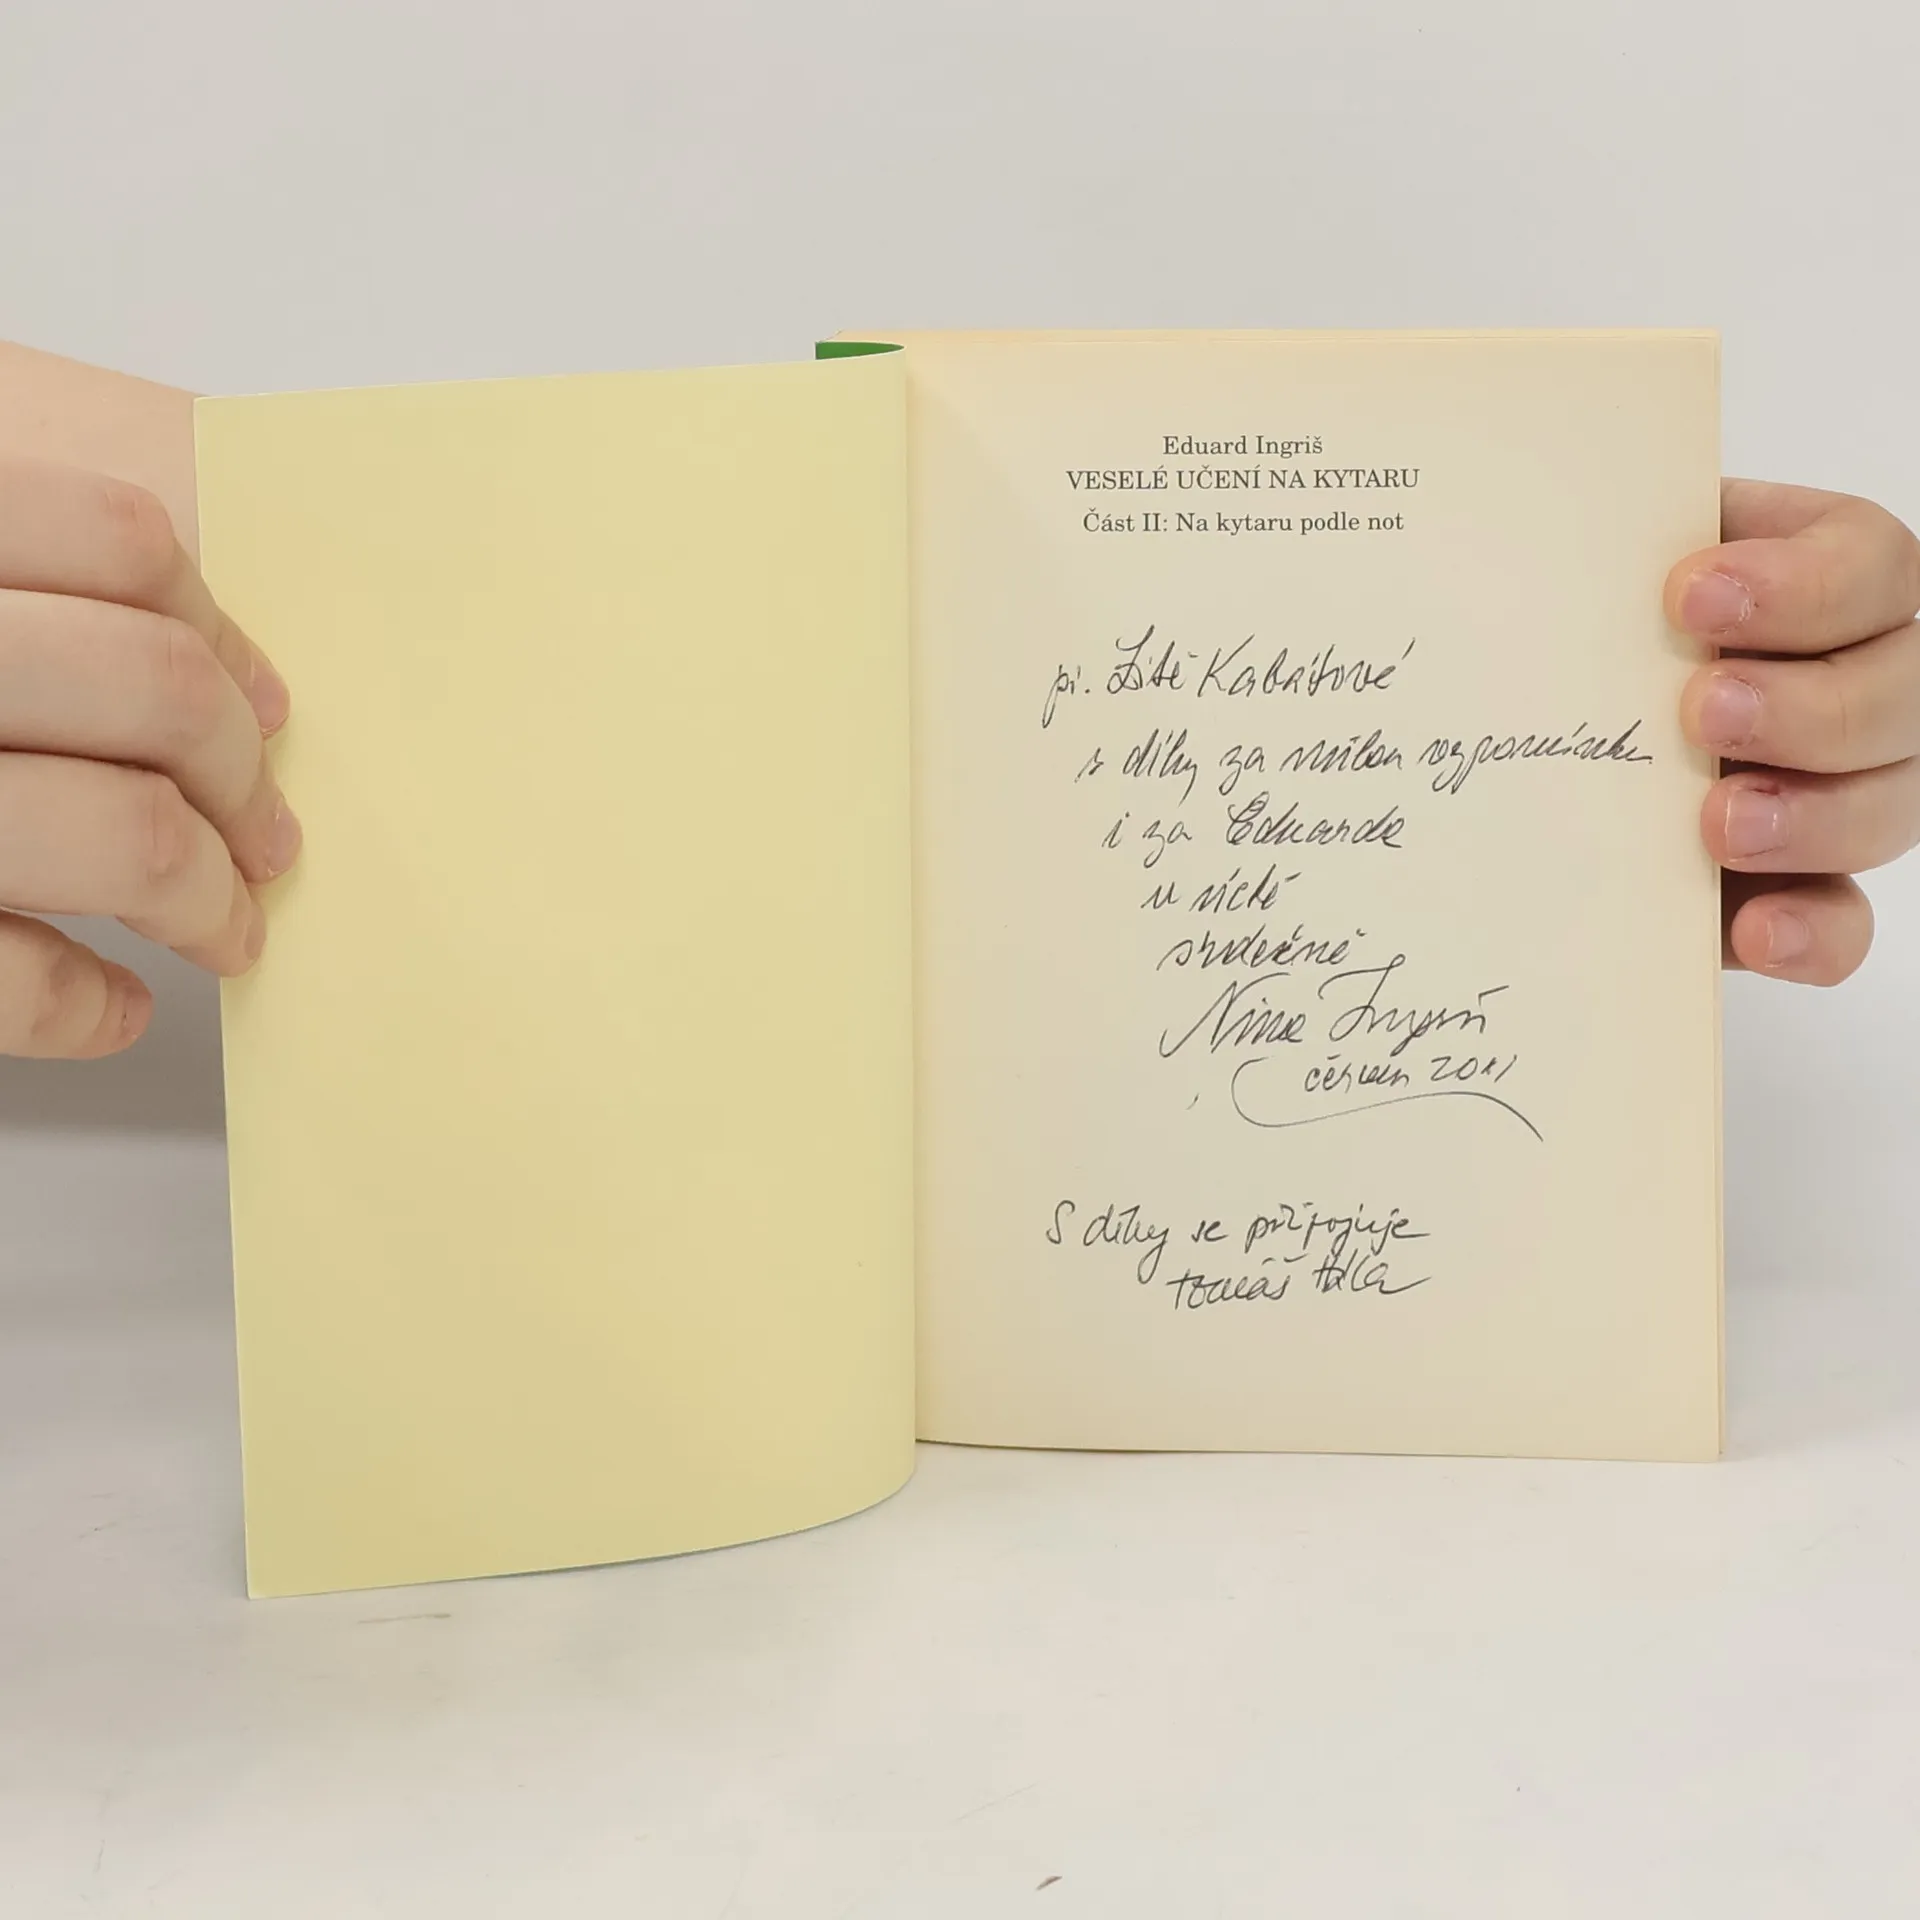 Eduard Ingriš
VESELÉ UČENÍ NA KYTARU
Část II: Na kytaru podle not
pí. Zitě Kabátové
s díky za milou vzpomínku
i za Eduarda
v úctě
srdečně
Nina Ingriš
červen 2011
S díky se připojuje
Tomáš